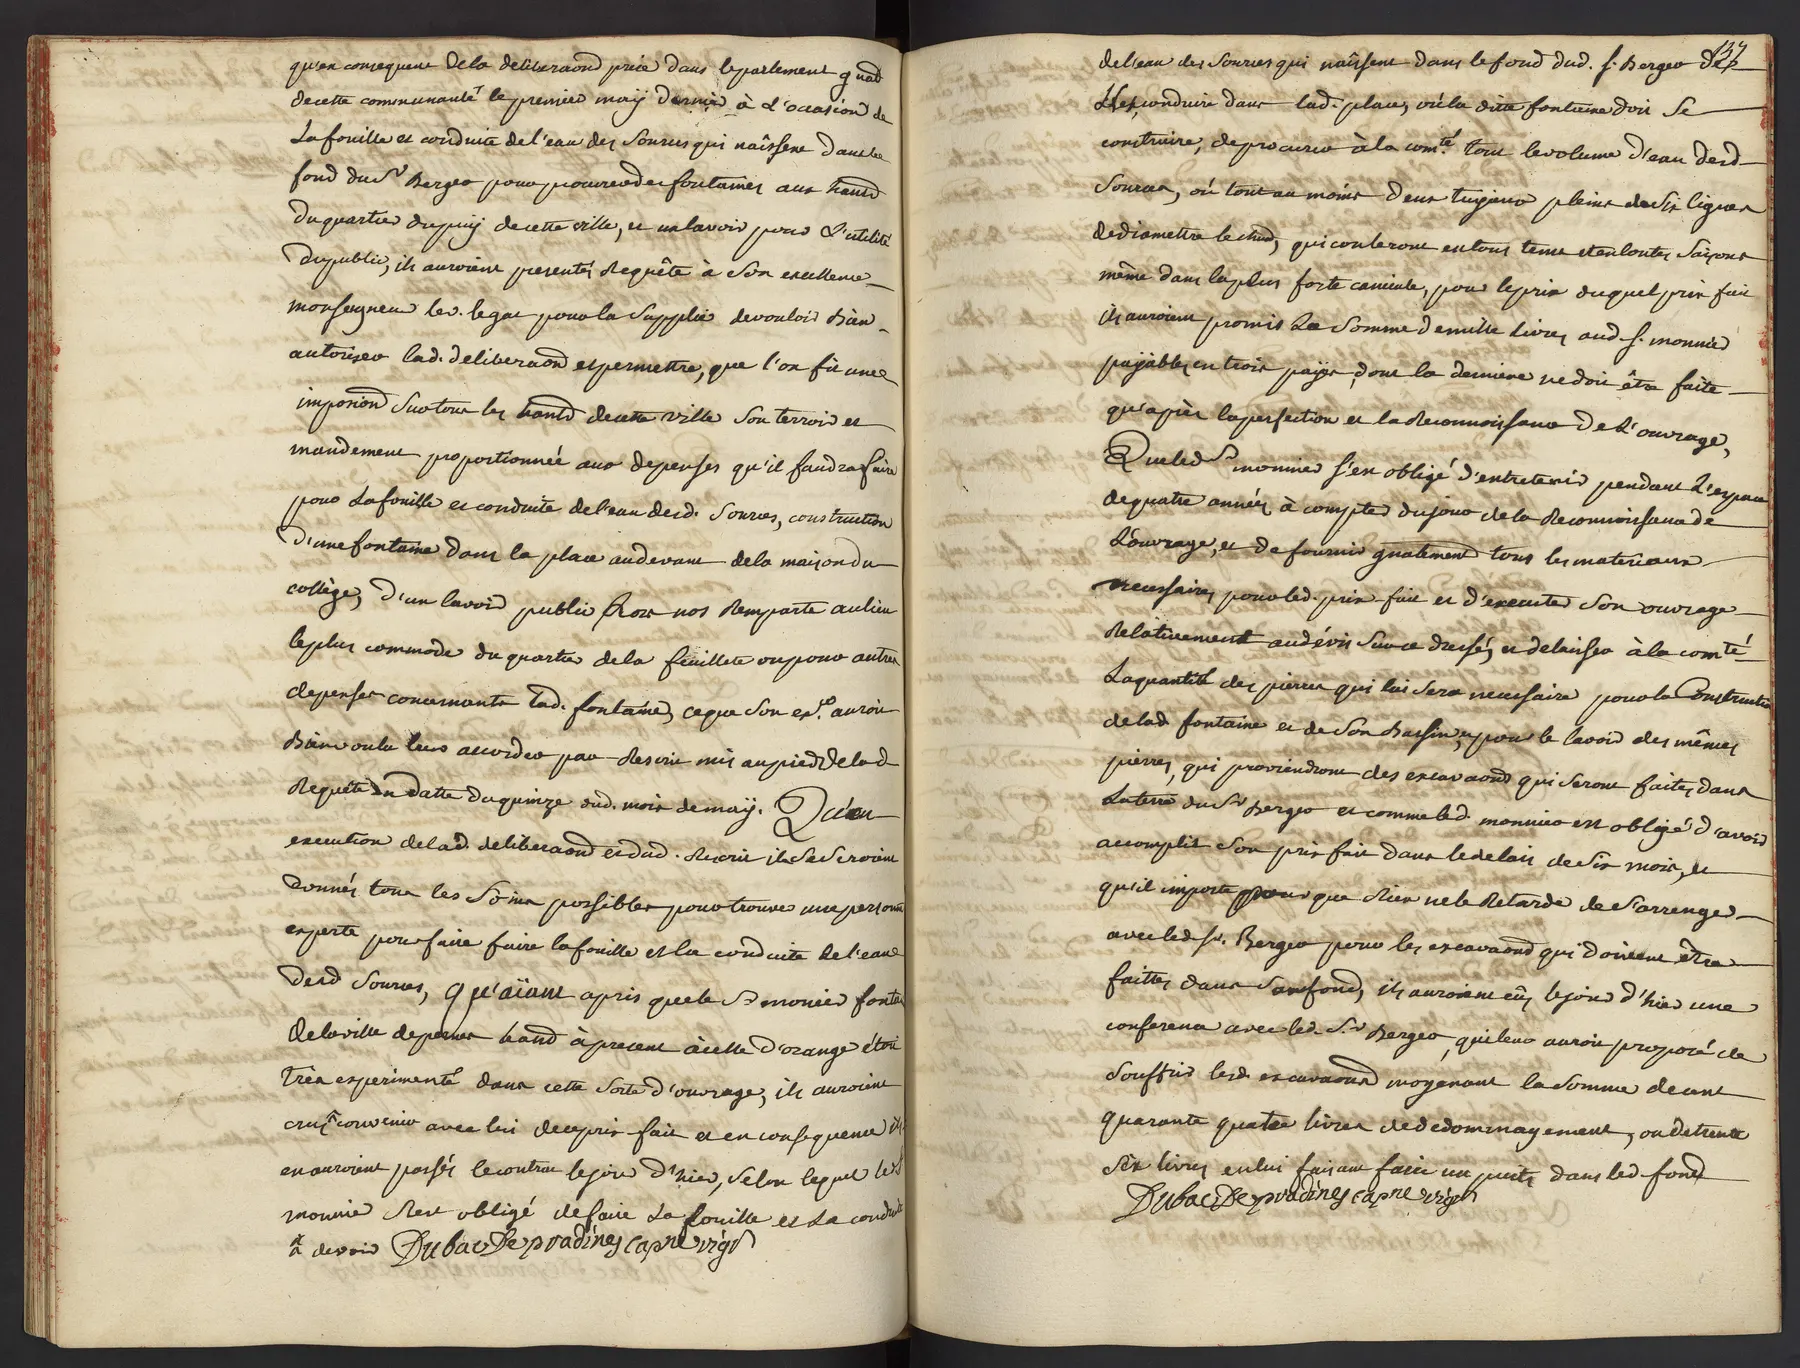 qu'en consequence de la deliberaond prise dans leparlement gnãl
decette communauté le premier maÿ dernier à L'occasion de
La fouille et conduite de l'eau des Sources qui naîssent dans le
fond du Sr Bergeo pour pourvoir de fontaines aux hañts
Du quartier du puy decette ville, et un lavoir pour L'utilité
Du public, ils auroient presentés Requête à Son excellence
monseigneur le v. legat pour la Supplier devouloir Bien
autoriser lad. deliberaond et permettre, que l'on fit une
imposiond Sur tous les hañts decette ville Son terroir et
mandement proportionnée aux depenses qu'il faudra faire
pour La fouille et conduite de l'eau desd. Sources, construction
D'une fontaine Dans la place au devant de la maison du
collège, D'un lavoir public hors nos Remparts au lieu
le plus commode du quartier de la feuillete ou pour autres
depenses concernants lad. fontaine, ce que Son exce. auroit
Bien voulu leur accorder par Rescrit mis au pied de lad
Requête En datte du quinze dud. mois de maÿ. Qu'en
execution de lad. deliberaond et dud. Rescrit ils Se Seroient
Donnés tous les Soins possibles pour trouver une personne
experte pour faire faire la fouille et la conduite de l'eau
Desd Sources, qu'aïant apris que le Sr monier
De la ville de pernes hañt à present à celle D'orange étoit
Très experimenté dans cette Sorte d'ouvrage, ils auroient
cru convenir avec lui de ce prix fait et en consequence ils
en auroient passés le contrat le jour D'hier, Selon lequel led
monnier s'est obligé de faire La fouille et La conduite
devoir Dubac De pradines cap.ne vigr
137
de l'eau des Sources qui naîssent dans le fond dud. S. Bergeo
conduire dans lad. place, où la ditte fontaine doit Se
construire, de procurer à la comté. tout le volume D'eau desd
Sources, où tout au moins deux tuyaux pleins de Six lignes
de diamettre le chud, qui couleront en tous tems et en toutes Saisons
même dans la plus forte canicule, pour le prix duquel prix fait
ils auroient promis La Somme de mille Livres aud. S. monnier
payables en trois payes, dont la derniere ne doit être faite
qu'après la perfection et la Reconnoissance De L'ouvrage,
Que led Sr monnier s'est obligé d'entretenir pendant L'espace
de quatre années à compter du jour de la Reconnoissance de
L'ouvrage, et de fournir gñalement tous les materiaux
necessaires pour led. prix fait et d'executer Son ouvrage
Relativement au dévis Sur ce dressés et delaisser à la comté.
La quantité des pierres qui lui Sera necessaire pour la Construction
de lad fontaine et de Son Bassin, et pour le lavoir des mêmes
pierres, qui proviendront des excavaons qui Seront faites dans
La terre du Sr Bergeo et comme led. monnier est obligé d'avoir
accomplit Son prix fait dans le delais de Six mois, et
qu'il importe que Rien ne le Retarde de S'arrenger
avec led. Sr. Bergeo pour les excavaons qui doivent être
faittes dans Son fond, ils auroient eüs le jour d'hier une
conference avec led. Sr Bergeo, qui leur auroit proposé de
Souffrir lesd. excavaons moyenant la Somme de cent
quarante quatre livres de dedommagement, ou de trente
Six livres en lui faisant faire un puits dans led. fond
Dubac De pradines cap.ne vigr